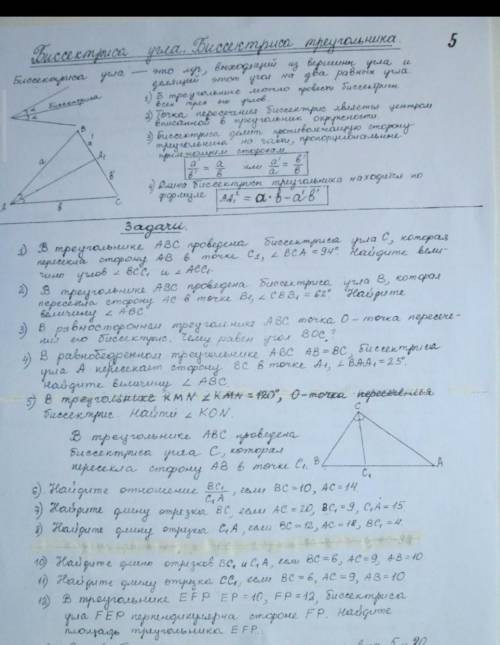 Биссектриса угла. Биссектриса треугольника.
5
Биссектриса угла — это луч, выходящий из вершины угла и
делящий этот угол на два равных угла
Биссектриса
1) В треугольнике можно провести биссектрисы
всех трёх его углов.
2) Точка пересечения биссектрис является центром
вписанной в треугольник окружности.
3) Биссектриса делит противолежащую сторону
треугольника на части, пропорциональные
прилежащим сторонам
a'/b' = a/b или a'/a = b'/b
4) Длина биссектрисы треугольника находится по
формуле AA₁² = a·b - a'b'
B
a'
A₁
a
b'
A
b
C
Задачи.
1) В треугольнике ABC проведена биссектриса угла C, которая
пересекла сторону AB в точке C₁, ∠BCA = 94°. Найдите вели-
чину углов ∠BCC₁ и ∠ACC₁.
2) В треугольнике ABC проведена биссектриса угла B, которая
пересекла сторону AC в точке B₁, ∠CBB₁ = 62°. Найдите
величину ∠ABC
3) В равностороннем треугольнике ABC точка O - точка пересече-
ния его биссектрис. Чему равен угол BOC?
4) В равнобедренном треугольнике ABC AB=BC, биссектриса
угла A пересекает сторону BC в точке A₁, ∠BAA₁ = 25°.
Найдите величину ∠ABC.
5) В треугольнике KMN ∠KMN = 120°, O-точка пересечения
биссектрис. Найти ∠KON.
В треугольнике ABC проведена
биссектриса угла C, которая
пересекла сторону AB в точке C₁.
C
B
C₁
A
6) Найдите отношение BC₁/C₁A, если BC = 10, AC = 14
7) Найдите длину отрезка BC, если AC = 20, BC₁ = 9, C₁A = 15
8) Найдите длину отрезка C₁A, если BC = 12, AC = 18, BC₁ = 4.
10) Найдите длины отрезков BC₁ и C₁A, если BC = 6, AC = 9, AB = 10
11) Найдите длину отрезка CC₁, если BC = 6, AC = 9, AB = 10
12) В треугольнике EFP EP = 10, FP = 12, биссектриса
угла FEP перпендикулярна стороне FP. Найдите
площадь треугольника EFP.